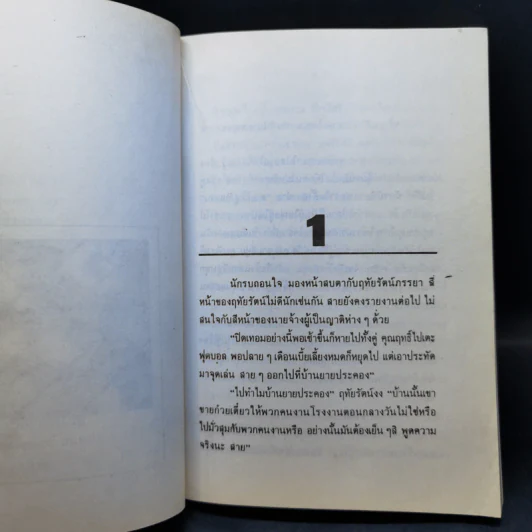 1
นักรบถอนใจ มองหน้าสบตากับฤทัยรัตน์ภรรยา สี
หน้าของฤทัยรัตน์ไม่ดีนักเช่นกัน สายยังคงรายงานต่อไป ไม่
สนใจกับสีหน้าของนายจ้างผู้เป็นญาติห่าง ๆ ด้วย
“ปิดเทอมอย่างนี้พอเช้าขึ้นก็หายไปทั้งคู่ คุณฤทธิ์ไปเตะ
ฟุตบอล พอปลาย ๆ เดือนเบี้ยเลี้ยงหมดก็หยุดไป แต่เอาประทัด
มาจุดเล่น สาย ๆ ออกไปที่บ้านยายประคอง”
“ไปทำไมบ้านยายประคอง” ฤทัยรัตน์งง “บ้านนั้นเขา
ขายก๋วยเตี๋ยวให้พวกคนงานโรงงานตอนกลางวันไม่ใช่หรือ
ไปมั่วสุมกับพวกคนงานหรือ อย่างนั้นมันต้องเย็น ๆ สิ พูดความ
จริงนะ สาย”